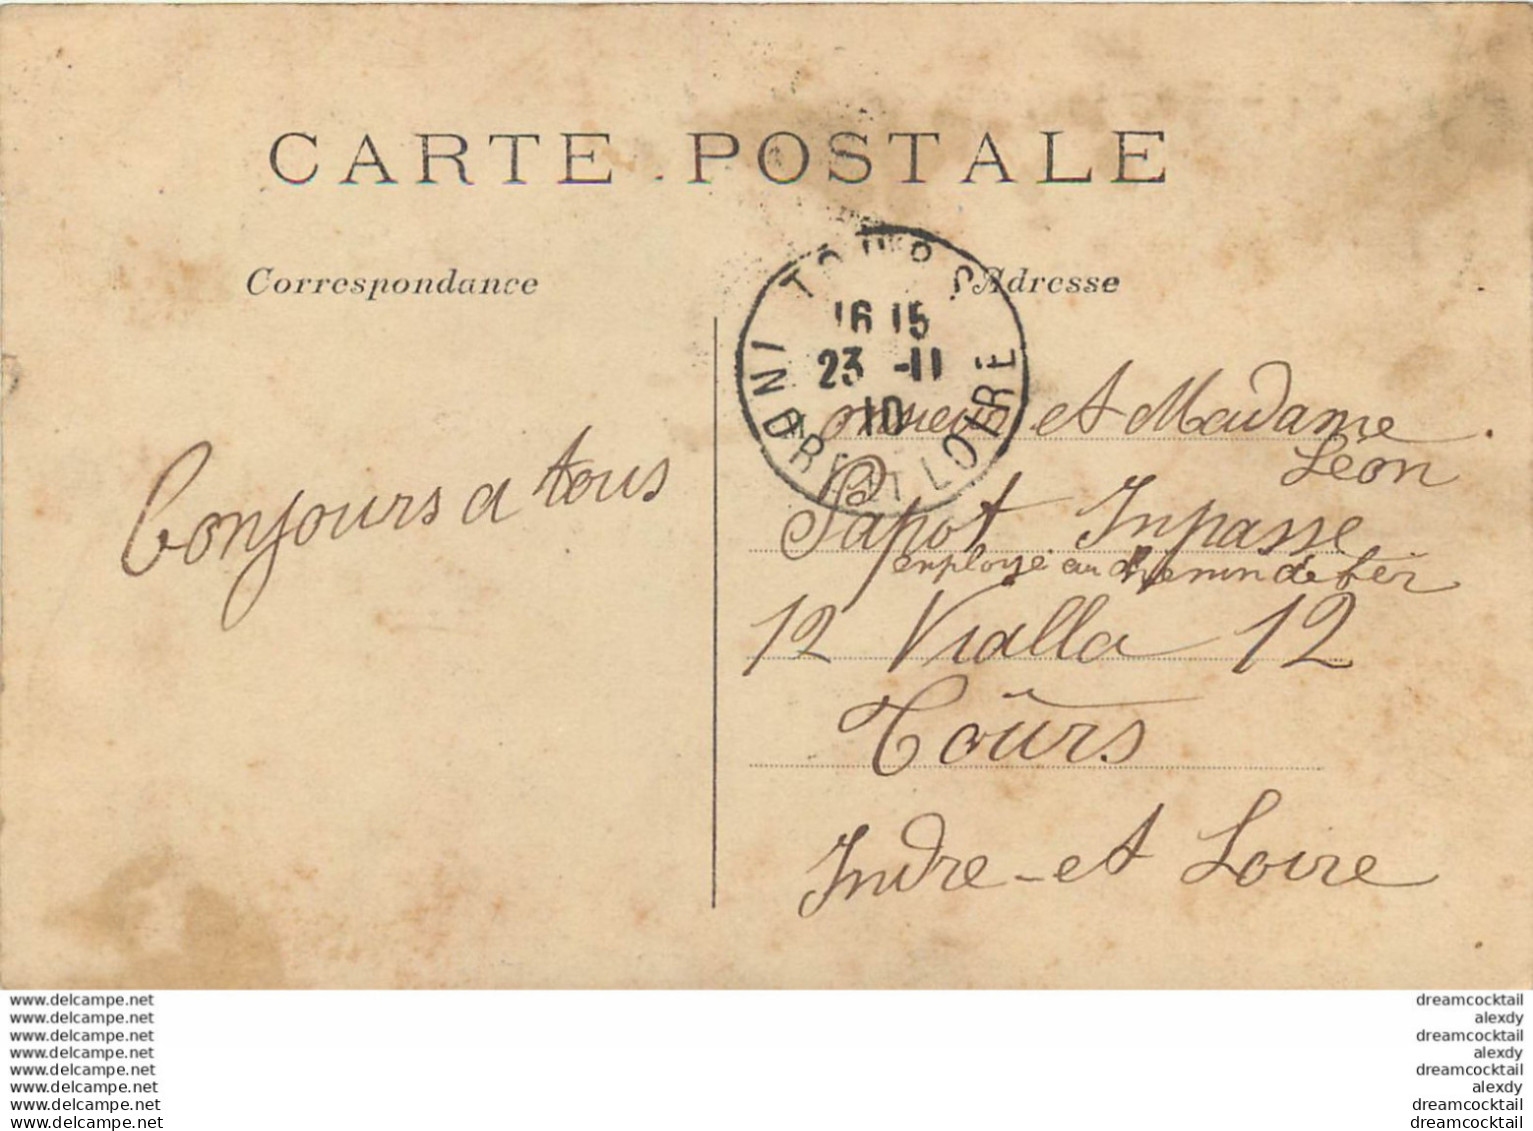 CARTE POSTALE
Correspondance
Adresse
TOURS
16 15
23 -11
10
INDRE ET LOIRE
Bonjours a tous
Monsieur et Madame
Léon
Papot Inpasse
employé au chemin de fer
12 Vialla 12
Tours
Indre-et Loire
www.delcampe.net
www.delcampe.net
www.delcampe.net
www.delcampe.net
www.delcampe.net
www.delcampe.net
www.delcampe.net
www.delcampe.net
dreamcocktail
alexdy
dreamcocktail
alexdy
dreamcocktail
alexdy
dreamcocktail
dreamcocktail